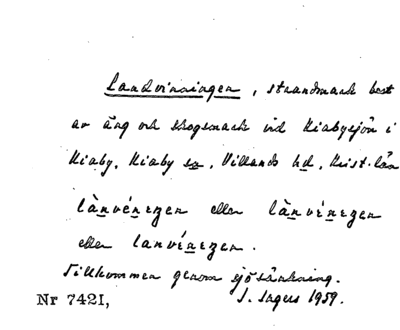 Landvinningen, strandmark best
av äng och skogsmark vid Kiabysjön i
Kiaby, Kiaby sn, Villands hd, Krist. län
lànvénezen eller lànvénezen
eller lanvénezen.
Tillkommen genom sjösänkning.
Nr 7421, J. Sagers 1959.